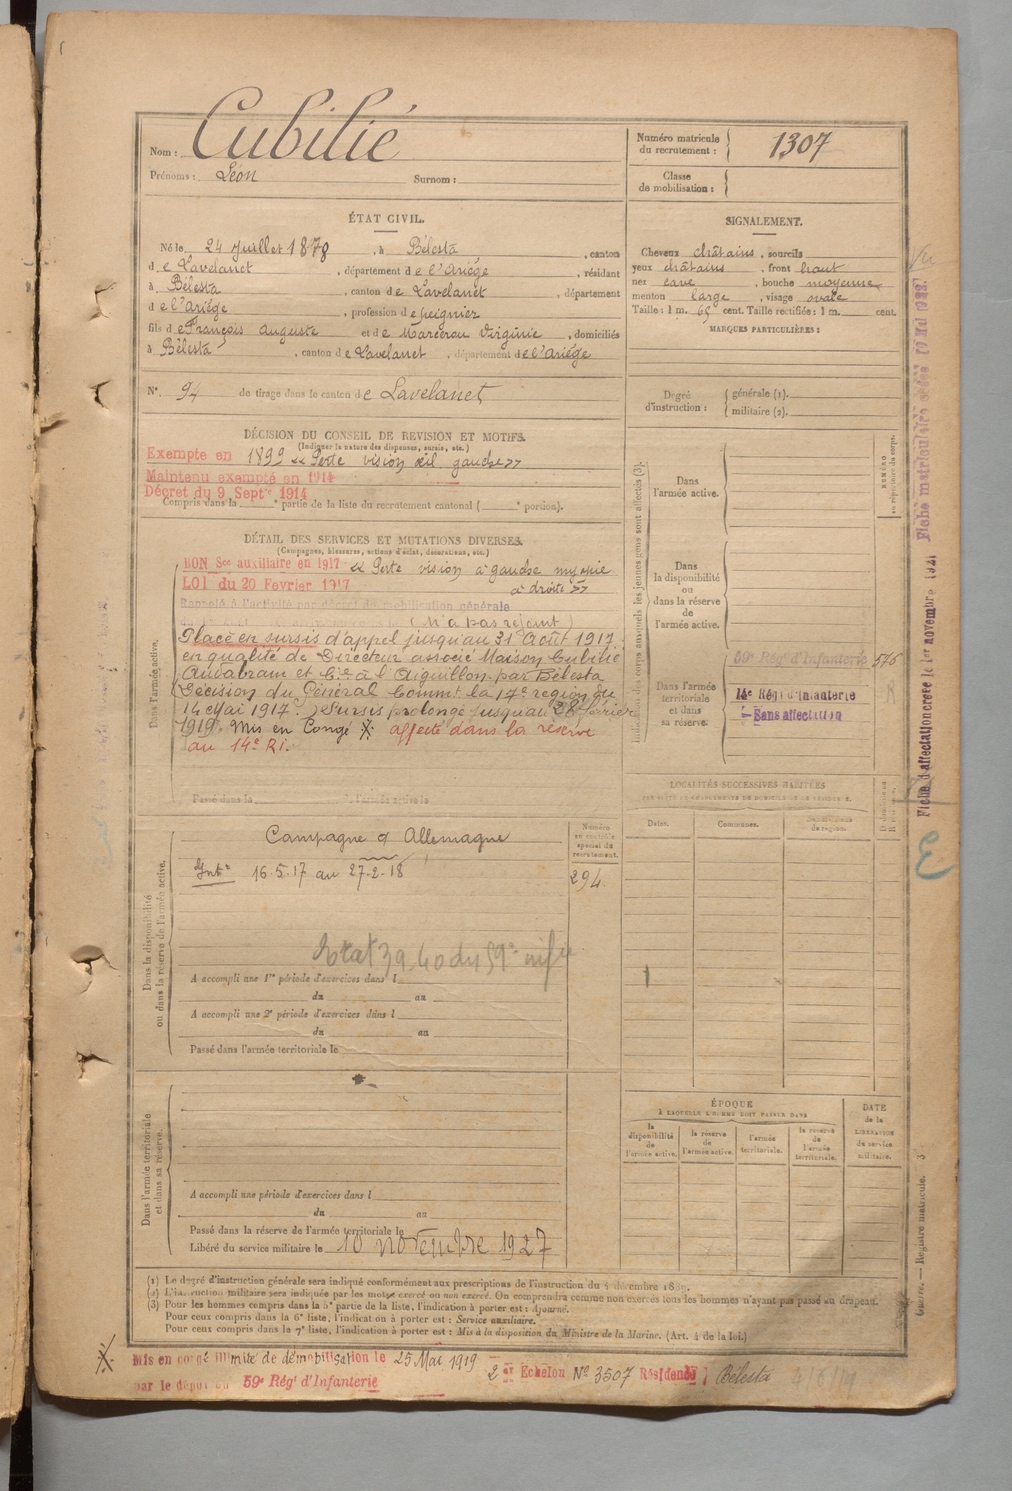 Nom : Cubilié
Prénoms : Léon Surnom :
Numéro matricule du recrutement : 1307
Classe de mobilisation :
ÉTAT CIVIL.
Né le 24 Juillet 1878, à Bélesta, canton
de Lavelanet, département de l'Ariège, résidant
à Bélesta, canton de Lavelanet, département
de l'Ariège, profession de peignier
fils de François Auguste et de Marcerou Virginie, domiciliés
à Bélesta, canton de Lavelanet, département de l'Ariège
N° 94 de tirage dans le canton de Lavelanet
SIGNALEMENT.
Cheveux châtains, sourcils
yeux châtains, front haut
nez cave, bouche moyenne
menton large, visage ovale
Taille : 1 m. 65 cent. Taille rectifiée : 1 m. cent.
MARQUES PARTICULIÈRES :
Degré d'instruction : générale (1).
militaire (2).
DÉCISION DU CONSEIL DE REVISION ET MOTIFS.
(Indiquer la nature des dispenses, sursis, etc.)
Exempté en 1899 « Perte vision œil gauche »
Maintenu exempté en 1914
Décret du 9 Septre 1914
Compris dans la e partie de la liste du recrutement cantonal ( e portion).
DÉTAIL DES SERVICES ET MUTATIONS DIVERSES.
(Campagnes, blessures, actions d'éclat, décorations, etc.)
Dans l'armée active.
BON Sce auxiliaire en 1917 « Perte vision à gauche myopie
LOI du 20 Fevrier 1917 à droite »
Rappelé à l'activité par décret de mobilisation générale
(N'a pas rejoint)
Placé en sursis d'appel jusqu'au 31 Août 1917
en qualité de Directeur associé Maison Cubilié
Audabram et Cie à l'Aiguillon par Bélesta
(Décision du Général Commt la 17e région du
14 Mai 1917.) Sursis prolongé jusqu'au 28 février
1919. Mis en Congé X. affecté dans la réserve
au 14e R.I.
Passé dans la de l'armée active le
NUMÉRO au répertoire du corps.
Indication des corps auxquels les jeunes gens sont affectés (3).
Dans l'armée active.
Dans la disponibilité ou dans la réserve de l'armée active.
Dans l'armée territoriale et dans sa réserve.
59e Régt d'Infanterie 576
14e Régt d'Infanterie
Sans affectation
LOCALITÉS SUCCESSIVES HABITÉES
Dates. Communes. Subdivisions de région.
Dans la disponibilité ou dans la réserve de l'armée active.
Campagne c/ Allemagne
Intre 16.5.17 au 27.2.18
Numéro au contrôle spécial du recrutement.
294.
Etat 39.40 du 59e
A accompli une 1re période d'exercices dans l
du au
A accompli une 2e période d'exercices dans l
du au
Passé dans l'armée territoriale le
Dans l'armée territoriale et dans sa réserve.
A accompli une période d'exercices dans l
du au
Passé dans la réserve de l'armée territoriale le
Libéré du service militaire le 10 novembre 1927
ÉPOQUE
À LAQUELLE L'HOMME DOIT PASSER DANS
la disponibilité de l'armée active.
la réserve de l'armée active.
l'armée territoriale.
la réserve de l'armée territoriale.
DATE de la LIBÉRATION du service militaire.
(1) Le degré d'instruction générale sera indiqué conformément aux prescriptions de l'instruction du 4 décembre 1889.
(2) L'instruction militaire sera indiquée par les mots exercé ou non exercé. On comprendra comme non exercés tous les hommes n'ayant pas passé au drapeau.
(3) Pour les hommes compris dans la 5e partie de la liste, l'indication à porter est : Ajourné.
Pour ceux compris dans la 6e liste, l'indication à porter est : Service auxiliaire.
Pour ceux compris dans la 7e liste, l'indication à porter est : Mis à la disposition du Ministre de la Marine. (Art. 4 de la loi.)
X. Mis en congé illimité de démobilisation le 25 Mai 1919 2e Echelon No 3507 Résidence Bélesta
par le dépôt du 59e Régt d'Infanterie
Fiche d'affectation créée le 1er novembre 1921
Guerre. — Registre matricule.